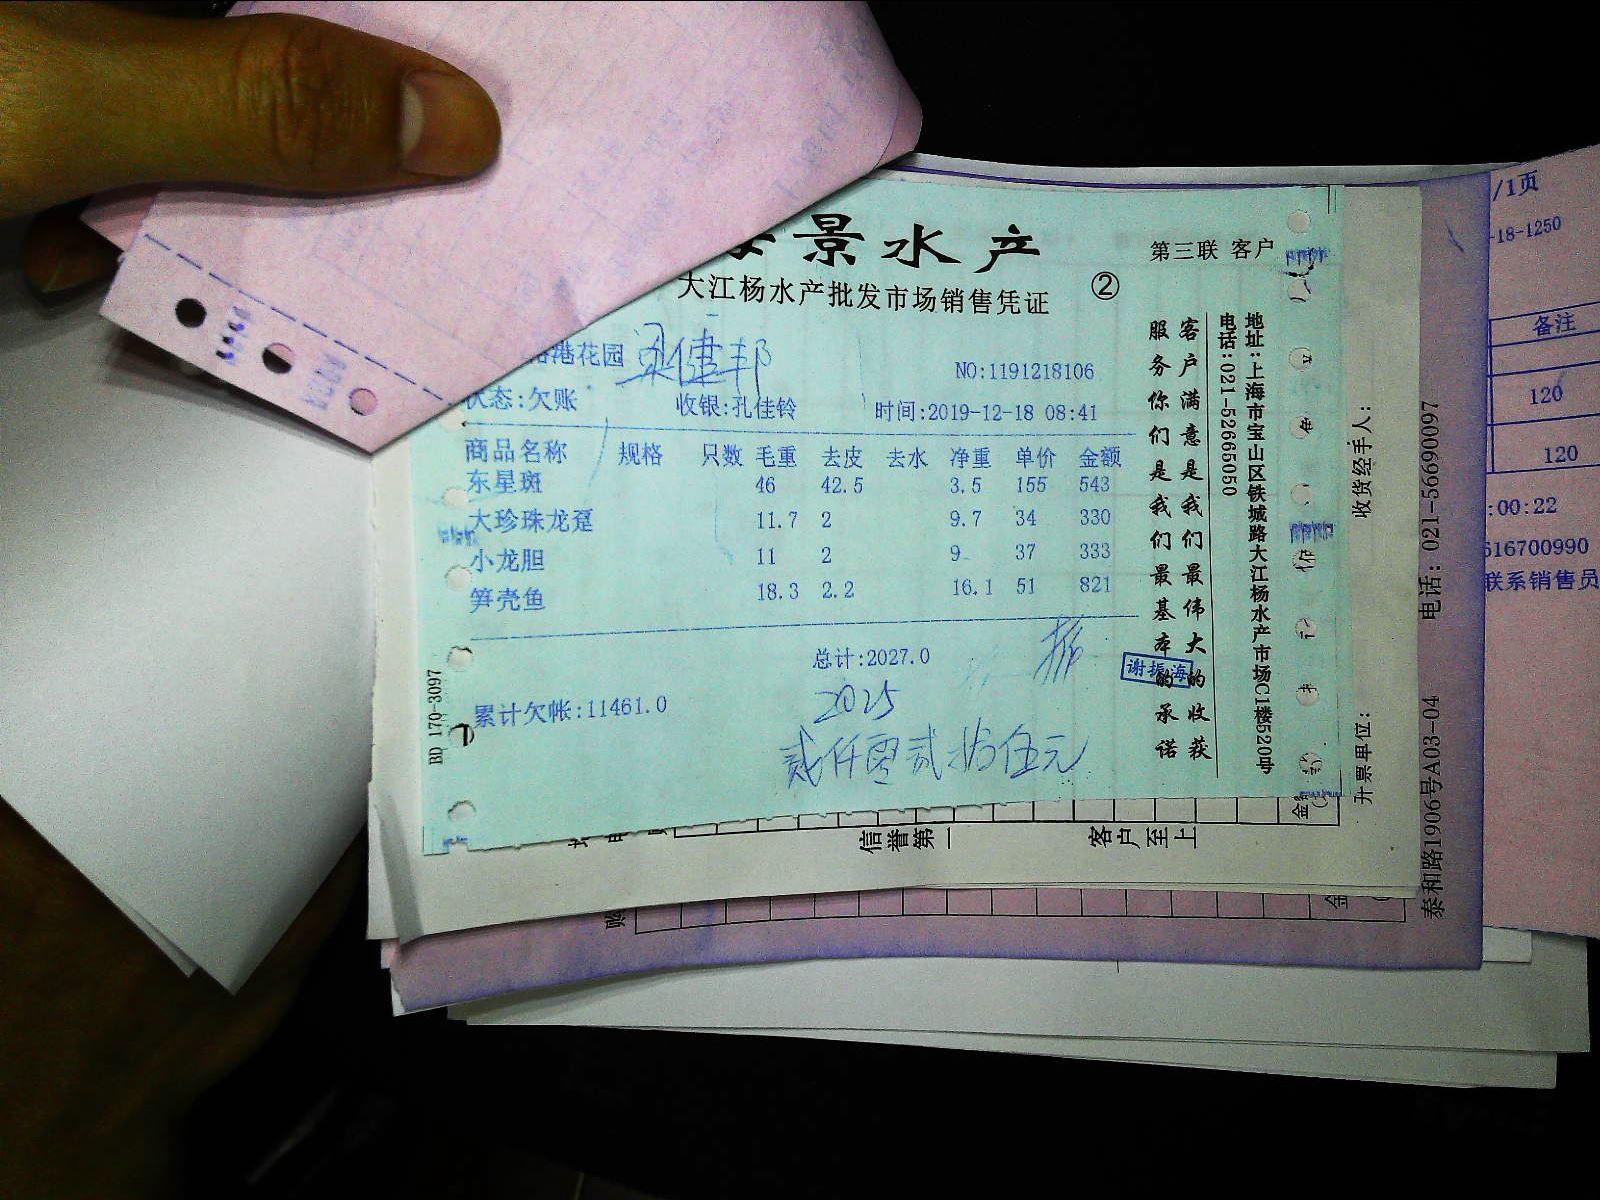 景水产
第三联 客户
大江杨水产批发市场销售凭证
②
港花园 梁健邦
NO:1191218106
状态:欠账 收银:孔佳铃 时间:2019-12-18 08:41
商品名称 规格 只数 毛重 去皮 去水 净重 单价 金额
东星斑 46 42.5 3.5 155 543
大珍珠龙趸 11.7 2 9.7 34 330
小龙胆 11 2 9 37 333
笋壳鱼 18.3 2.2 16.1 51 821
总计:2027.0
累计欠帐:11461.0
2025
贰仟零贰拾伍元
谢振海
客户满意是我们最伟大的收获
服务你们是我们最基本的承诺
地址:上海市宝山区铁城路大江杨水产市场C1楼520号
电话:021-52665050
BD 170-3097
收货经手人:
开票单位:
信誉第一
客户至上
泰和路1906号A03-04 电话: 021-56690097
/1页
-18-1250
备注
120
120
:00:22
616700990
联系销售员